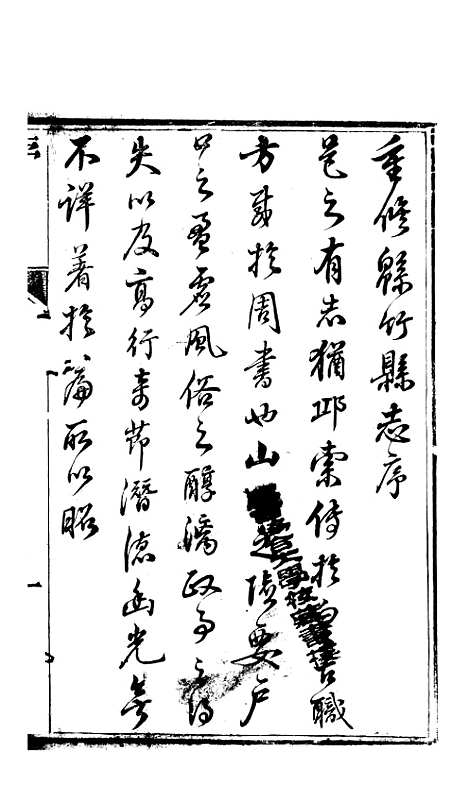 重修緜竹縣志序
邑之有志猶邱索傳於古職
方載於周書也山險要戶
口之盈虛風俗之醇漓政事之得
失以及高行奇節潛德幽光無
不詳著於篇所以昭